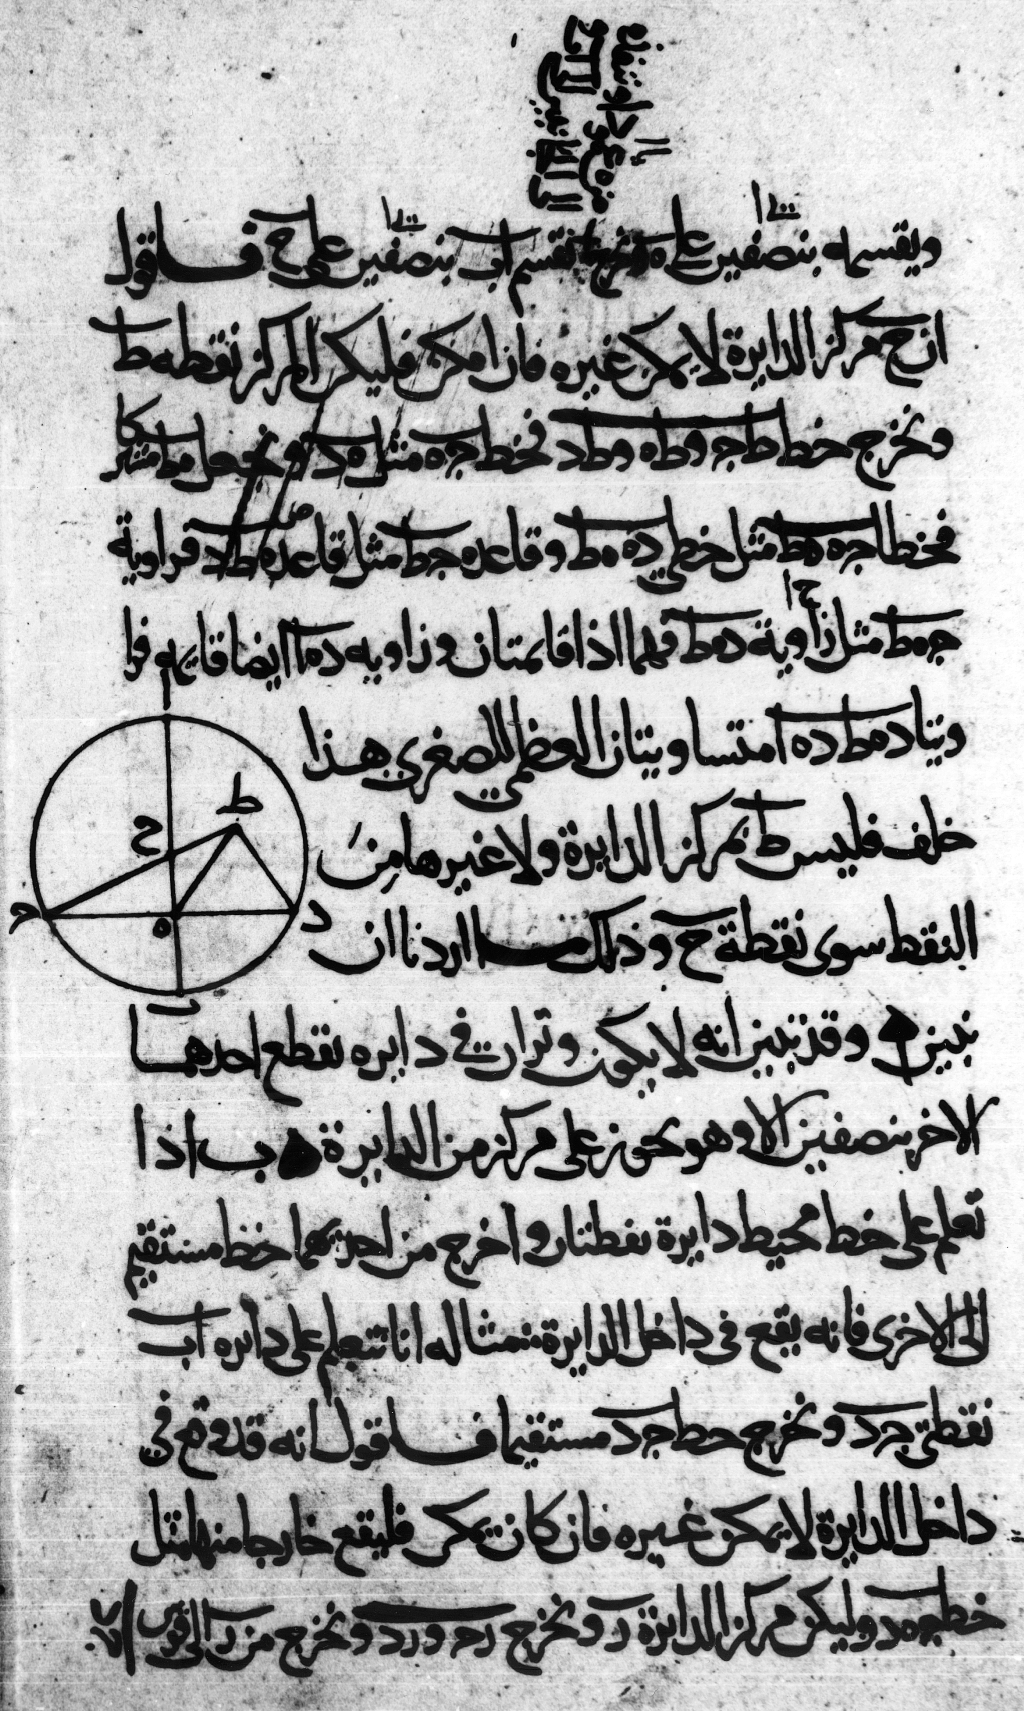 ويقسمه بنصفين على ه ونخرج نقسم اب بنصفين على ح فـاقول
ان ح مركز الدايرة لا يمكن غيره فان امكن فليكن المركز نقطه ط
ونخرج خطا ط ج وطه وط د فخط ج ه مثل ه د ونجعل ه ط مشتركا
فخطا ج ه ه ط مثل خطي د ه ه ط وقاعده ج ط مثل قاعده ط د فزاوية
ج ه ط مثل زاوية د ه ط فهما اذا قايمتان وزاويه د ه ا ايضا قايمه فزا
ويتا د ه ط د ه ا متساويتان العظمى للصغرى هذا
خلف فليس ط بمركز الدايرة ولا غيرها من
النقط سوى نقطة ح وذلك مـا اردنا ان
نبين وقد تبين انه لا يكون وتران في دايره يقطع احدهما
الاخر بنصفين الا وهو يجوز على مركز من الدايرة ب اذا
تعلم على خط محيط دايرة نقطتان واخرج من احديهما خط مستقيم
الى الاخرى فانه يقع في داخل الدايرة مثاله انا نتعلم على دايره اب
نقطتي ج د ونخرج خط ج د مستقيما فـاقول انه قد وقع في
داخل الدايرة لا يمكن غيره فان كان يمكن فليقع خارجا منها مثل
خط ج ه د وليكن مركز الدايرة ر ونخرج ر ج و ر د ونخرج من ر الى قوس
ا
ط
ح
ج
د
ه
ب